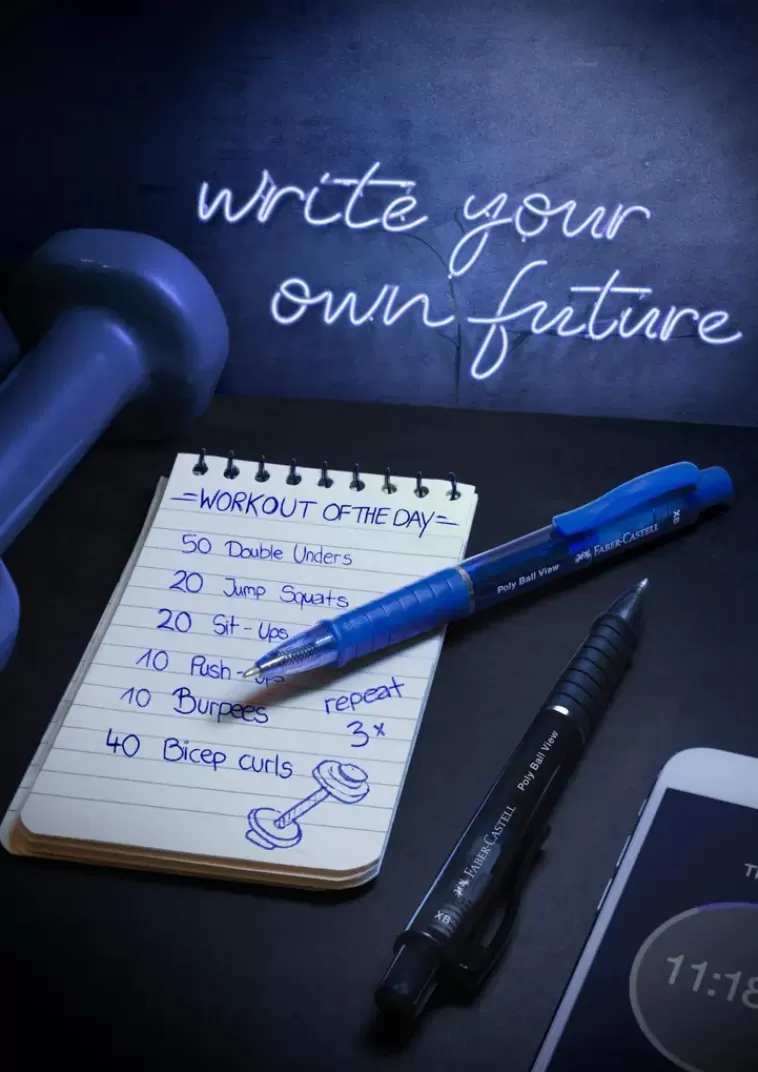 write your
own future
=WORKOUT OF THE DAY=
50 Double Unders
20 Jump Squats
20 Sit-Ups
10 Push-ups
10 Burpees
repeat
3x
40 Bicep curls
Poly Ball View FABER-CASTELL XB
Poly Ball View
FABER-CASTELL
XB
11:18